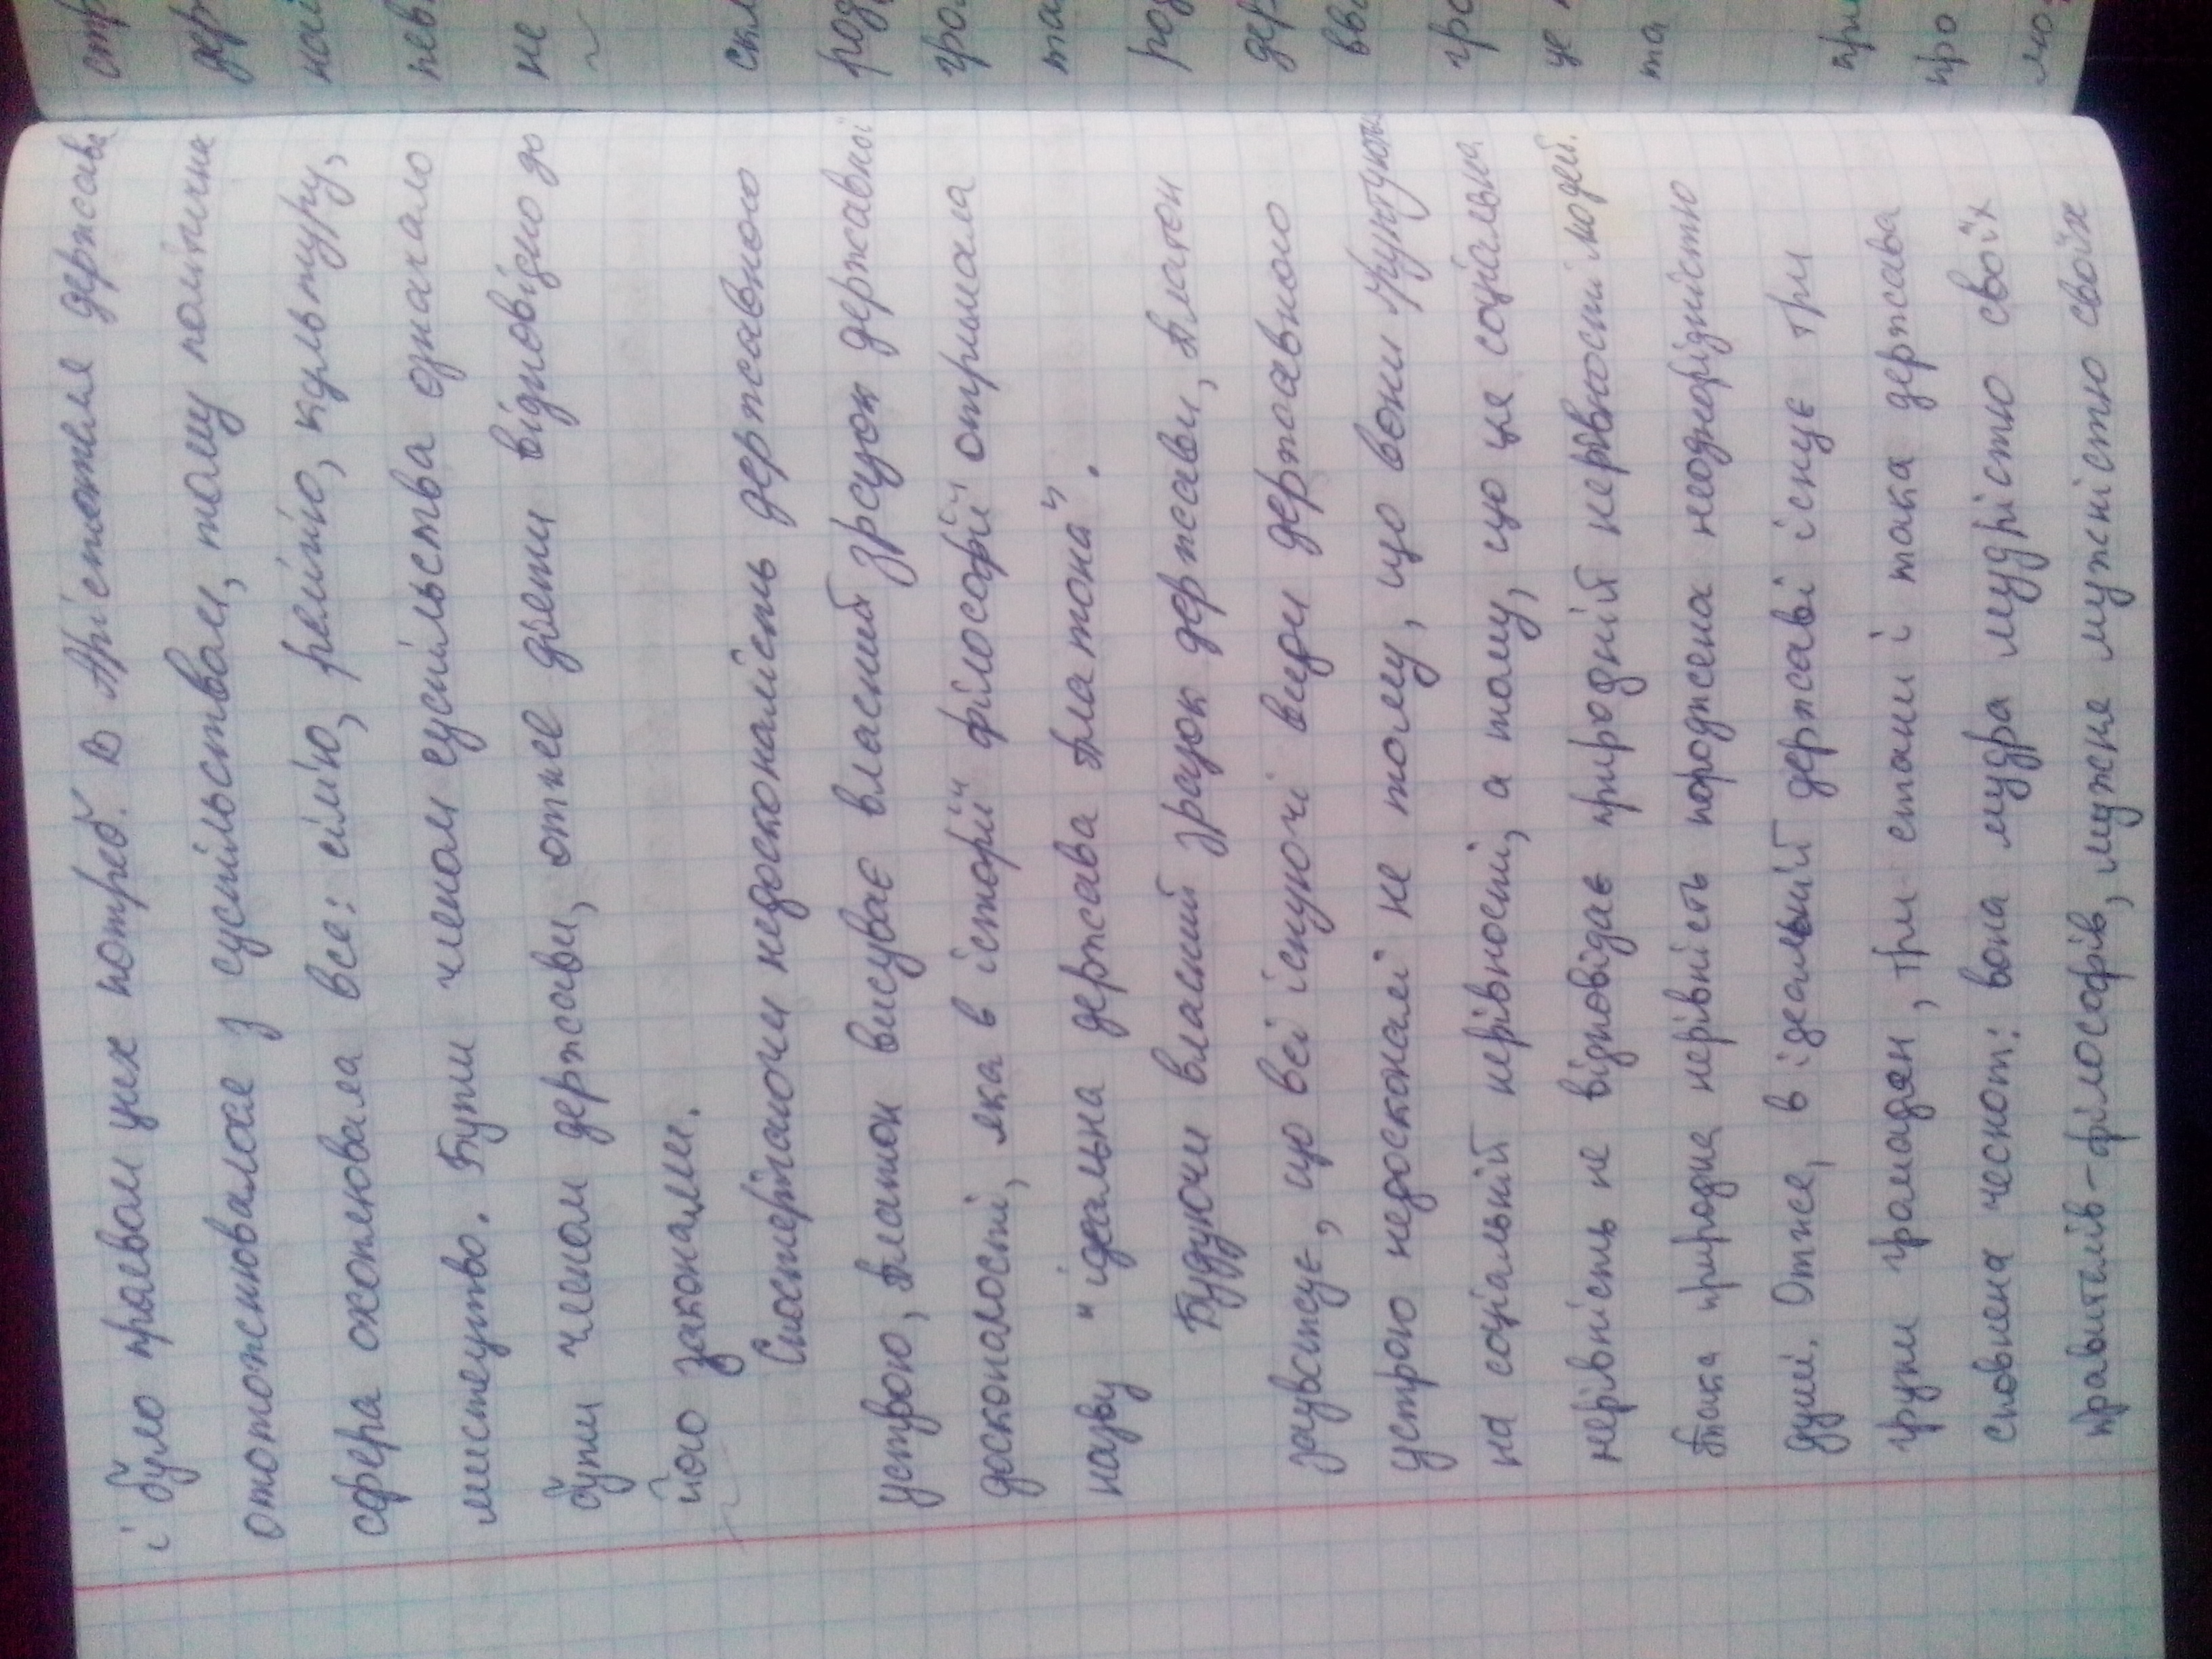 і було проявом цих потреб. В Арістотеля держава
ототожнювалося з суспільством, тому політична
сфера охоплювала все: сім'ю, релігію, культуру,
мистецтво. Бути членом суспільства означало
бути членом держави, отже діяти відповідно до
його законами.
Спостерігаючи недосконалість державного
устрою, Платон висуває власний зразок державної
досконалості, яка в історії філософії отримала
назву "ідеальна держава Платона".
Будуючи власний зразок держави, Платон
зауважує, що всі існуючі види державного
устрою недосконалі не тому, що вони ґрунтуються
на соціальній нерівності, а тому, що це соціальна
нерівність не відповідає природній нерівності людей.
Така природна нерівність породжена неоднорідністю
душі. Отже, в ідеальній державі існує три
групи громадян, три стани і така держава
сповнена чеснот: вона мудра мудрістю своїх
правителів-філософів, мужня мужністю своїх